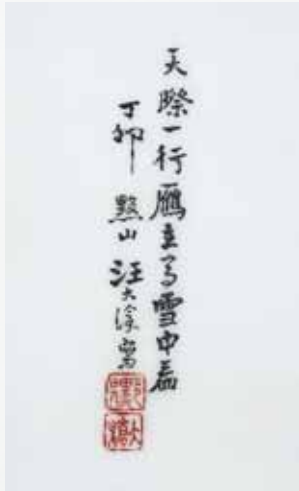 天際一行鴈立馬雪中看
丁卯 黟山 汪大滄寫